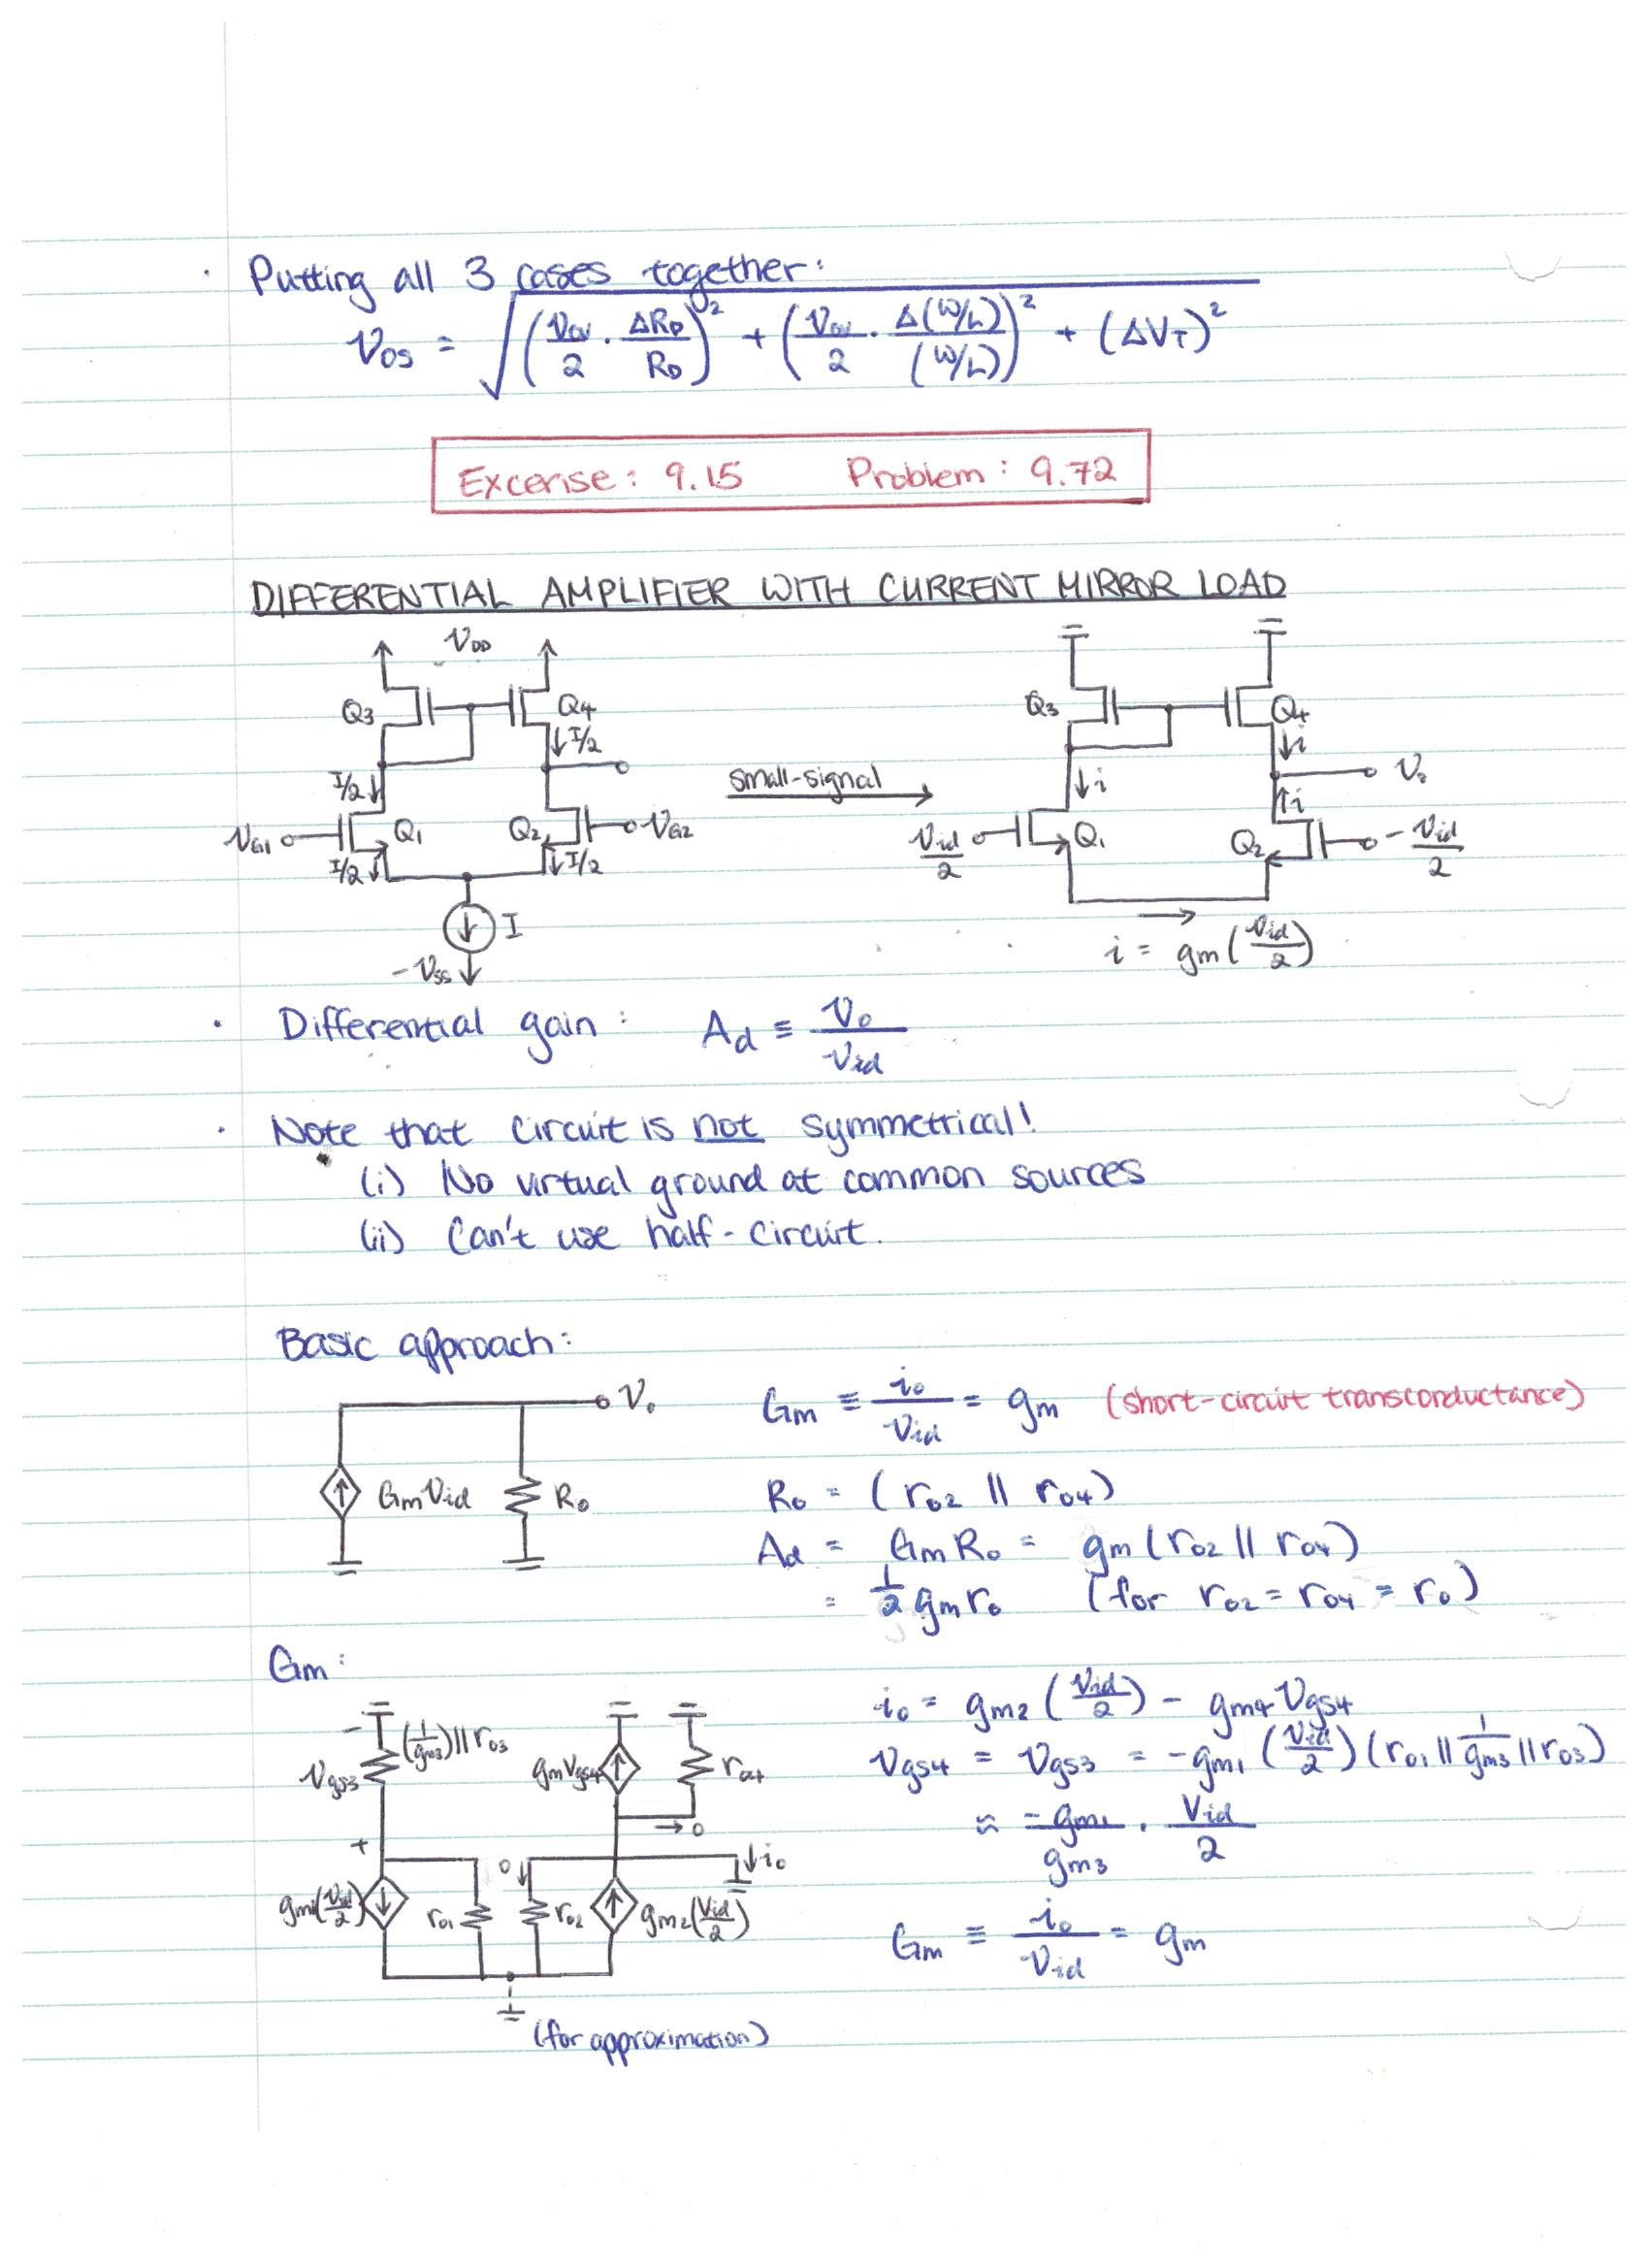 · Putting all 3 cases together:
V_OS = √( (V_OV/2 · ΔR_D/R_D)² + (V_OV/2 · Δ(W/L)/(W/L))² + (ΔV_T)² )
Excerise: 9.15 Problem: 9.72
DIFFERENTIAL AMPLIFIER WITH CURRENT MIRROR LOAD
V_DD
Q3 Q4
I/2
I/2
V_G1 Q1 Q2 V_G2
I/2 I/2
I
-V_SS
small-signal
Q3 Q4
i
i V_o
i
v_id/2 Q1 Q2 -v_id/2
i = gm(v_id/2)
· Differential gain: A_d ≡ v_o/v_id
· Note that circuit is not symmetrical!
(i) No virtual ground at common sources
(ii) Can't use half-circuit.
Basic approach:
V_o
GmV_id R_o
Gm ≡ i_o/v_id = gm (short-circuit transconductance)
R_o = (r_o2 || r_o4)
A_d = GmR_o = gm(r_o2 || r_o4)
= 1/2 gm r_o (for r_o2 = r_o4 = r_o)
Gm:
-
(1/gm3)||r_o3
V_gs3
gmV_gs4 r_o4
+
0
0 i_o
gm1(v_id/2) r_o1 r_o2 gm2(v_id/2)
(for approximation)
i_o = gm2(v_id/2) - gm4V_gs4
V_gs4 = V_gs3 = -gm1(v_id/2)(r_o1 || 1/gm3 || r_o3)
≈ -gm1/gm3 · V_id/2
Gm ≡ i_o/v_id = gm